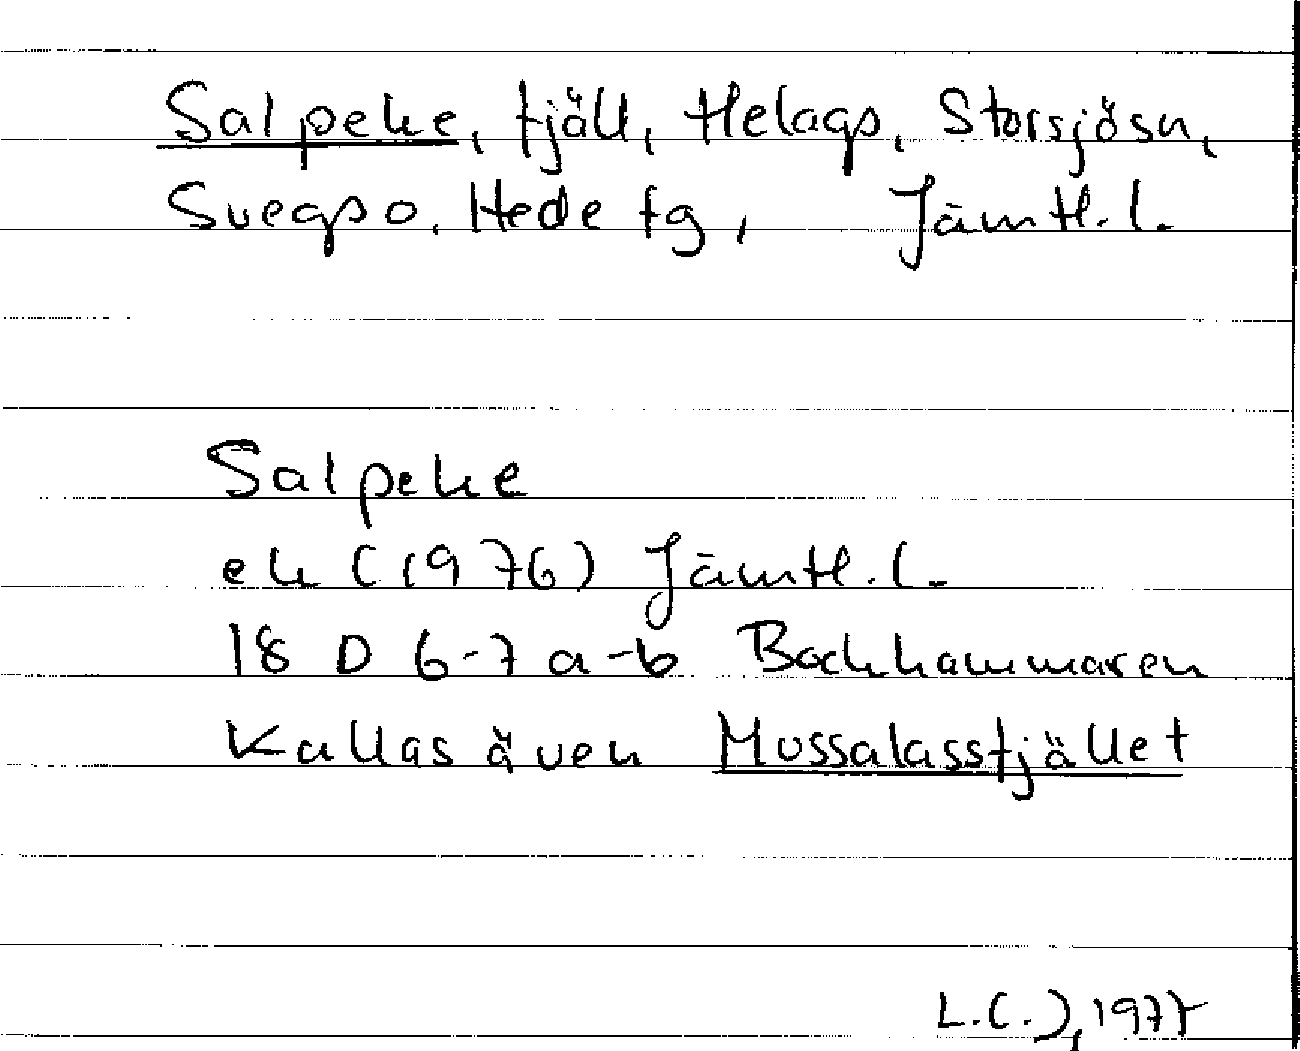 Salpeke, fjäll, Helags, Storsjösn,
Svegs o. Hede fg, Jämtl. l.
Salpeke
ek (1976) Jämtl. l.
18 D 6-7 a-b Bockhammaren
Kallas även Mussalassfjället
1977